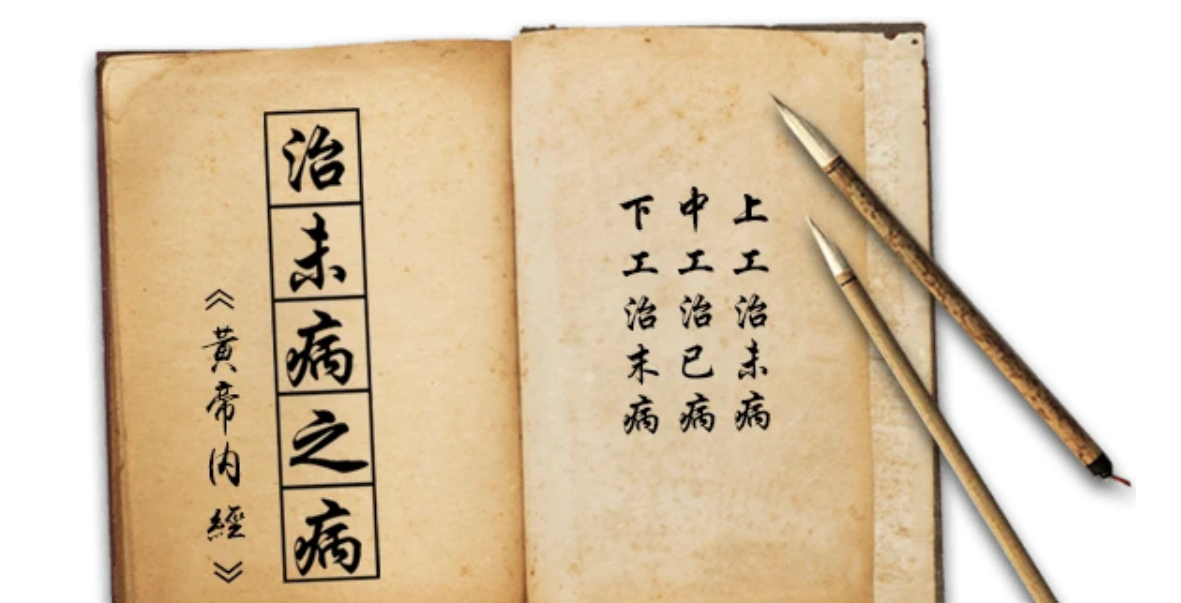 上工治未病
中工治已病
下工治末病
治未病之病
《黃帝内經》